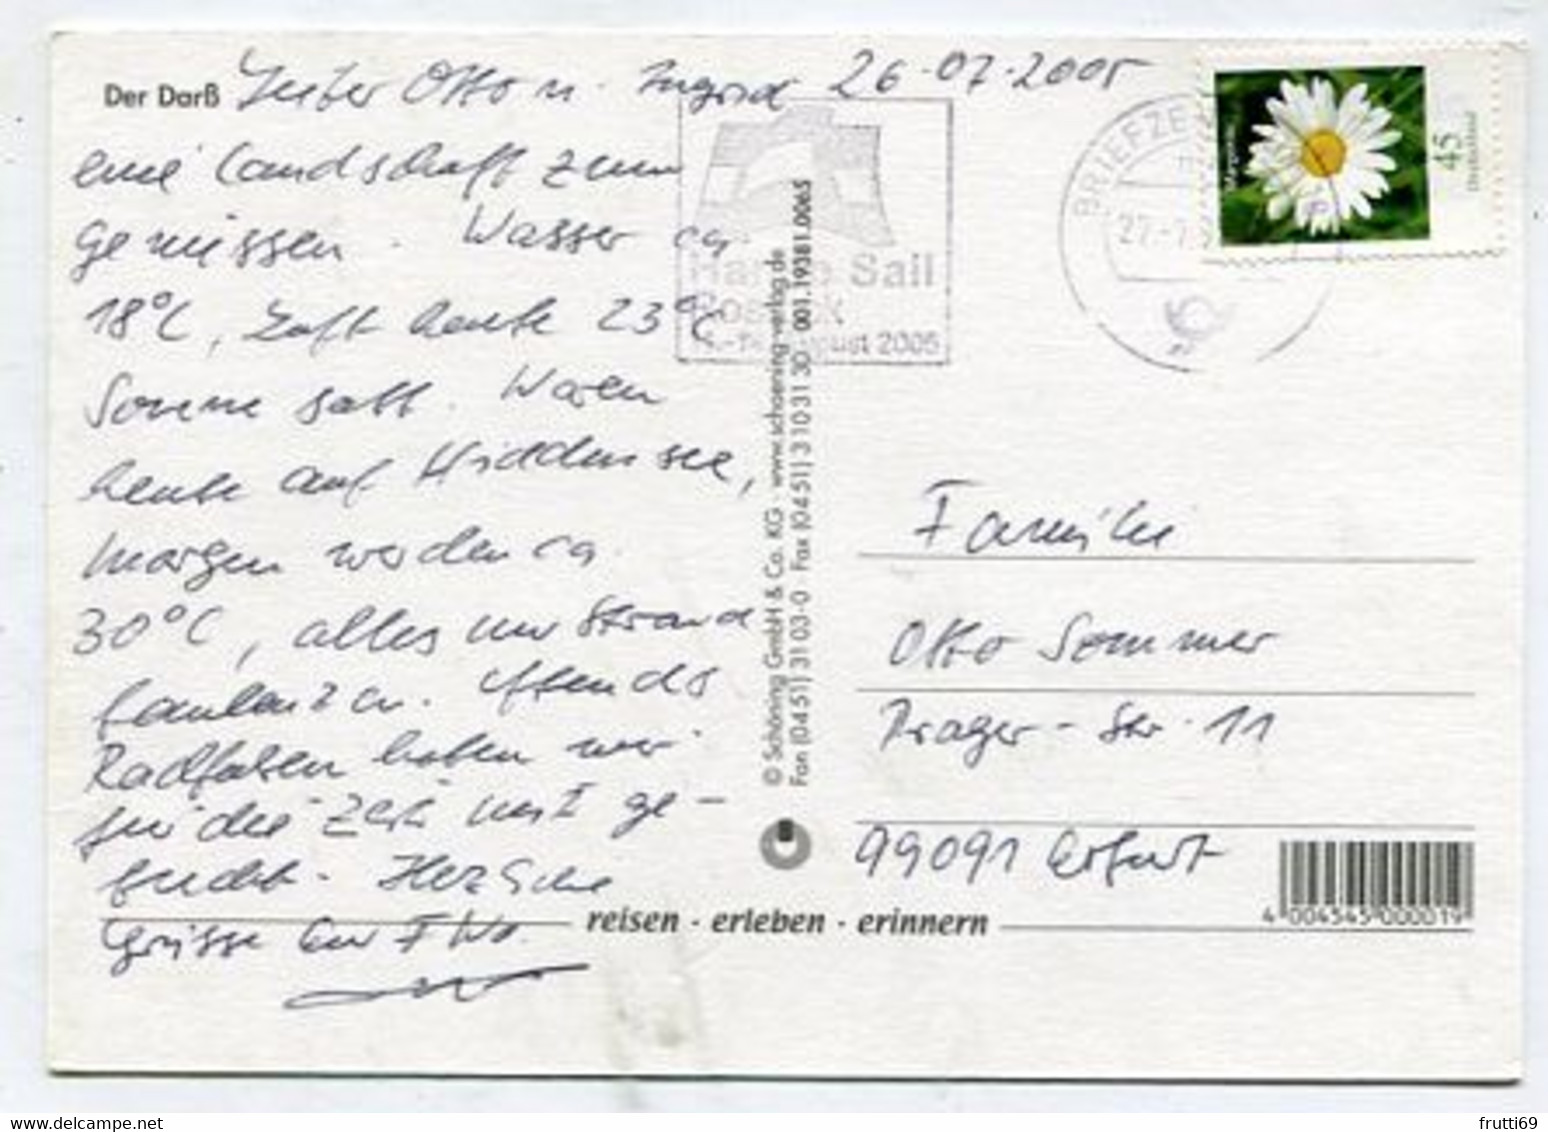 Der Darß Lieber Otto u. Ingrid 26.07.2005
eine Landschaft zum
geniessen. Wasser ca.
18°C, Luft heute 23°C
Sonne satt. Waren
heute auf Hiddensee,
morgen werden ca.
30°C, also nur Strand
faulenzen. Abends
Radfahren haben wir
für die Zeit uns ge-
bucht. Herzliche
Grüsse
reisen · erleben · erinnern
© Schöning GmbH & Co. KG · www.schoening-verlag.de
Fon (0451) 3103-0 · Fax (0451) 3103130 001.19381.0065
Hanse Sail
Rostock
August 2005
BRIEFZE
27.-7.
45
Familie
Otto Sommer
Prager-Str. 11
99091 Erfurt
4 004545 000019
frutti69